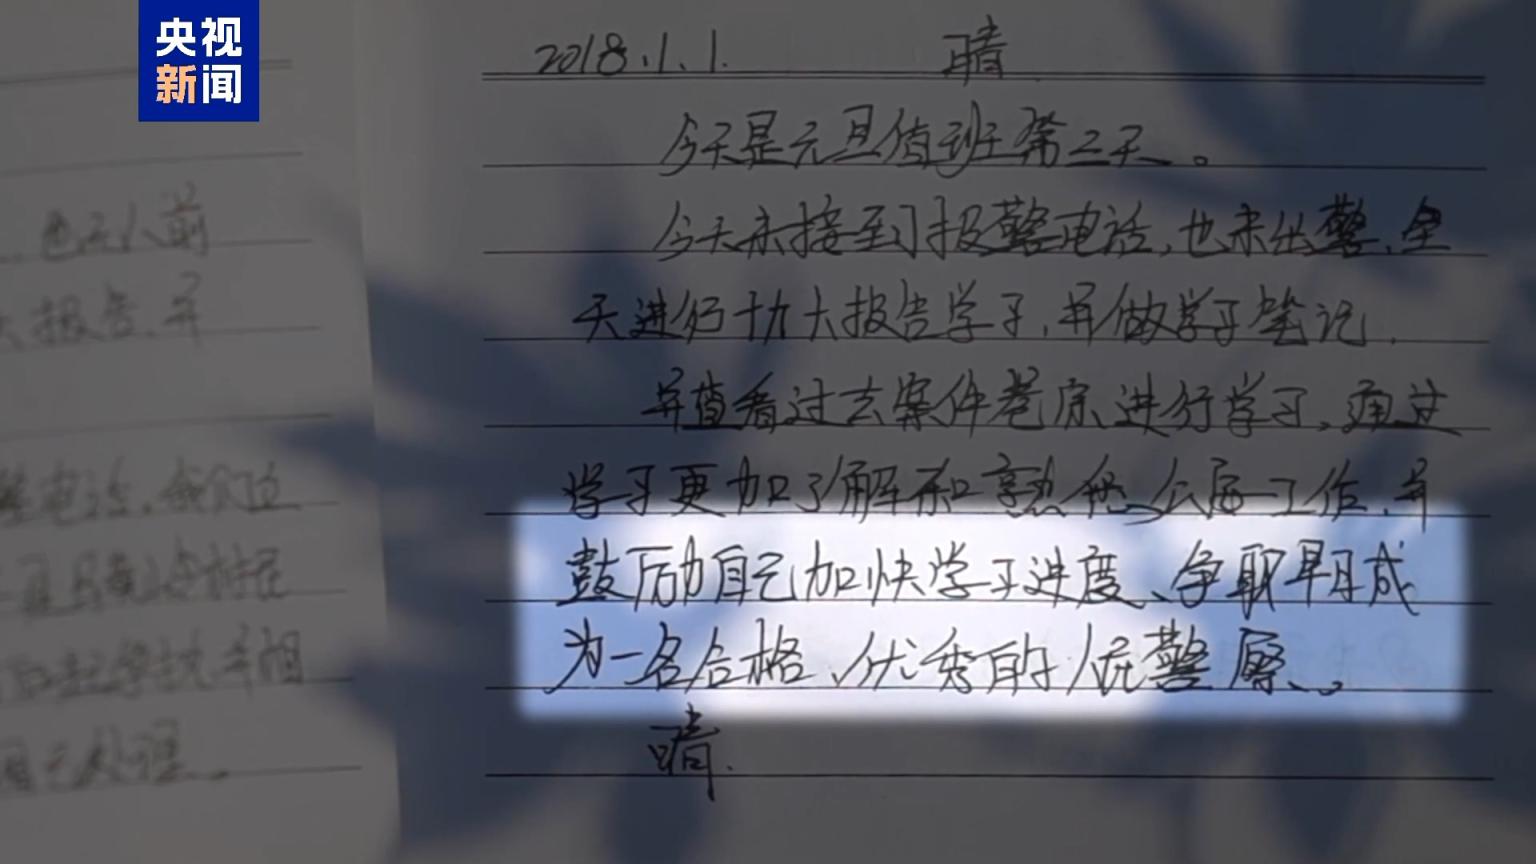 央视
新闻
2018.1.1. 晴
今天是元旦值班第三天。
今天未接到报警电话,也未出警,全
天进行十九大报告学习,并做学习笔记,
并查看过去案件卷宗进行学习,通过
学习更加了解和熟悉公安工作,并
鼓励自己加快学习进度、争取早日成
为一名合格、优秀的人民警察。
晴.
人前
大报告,并
电话,